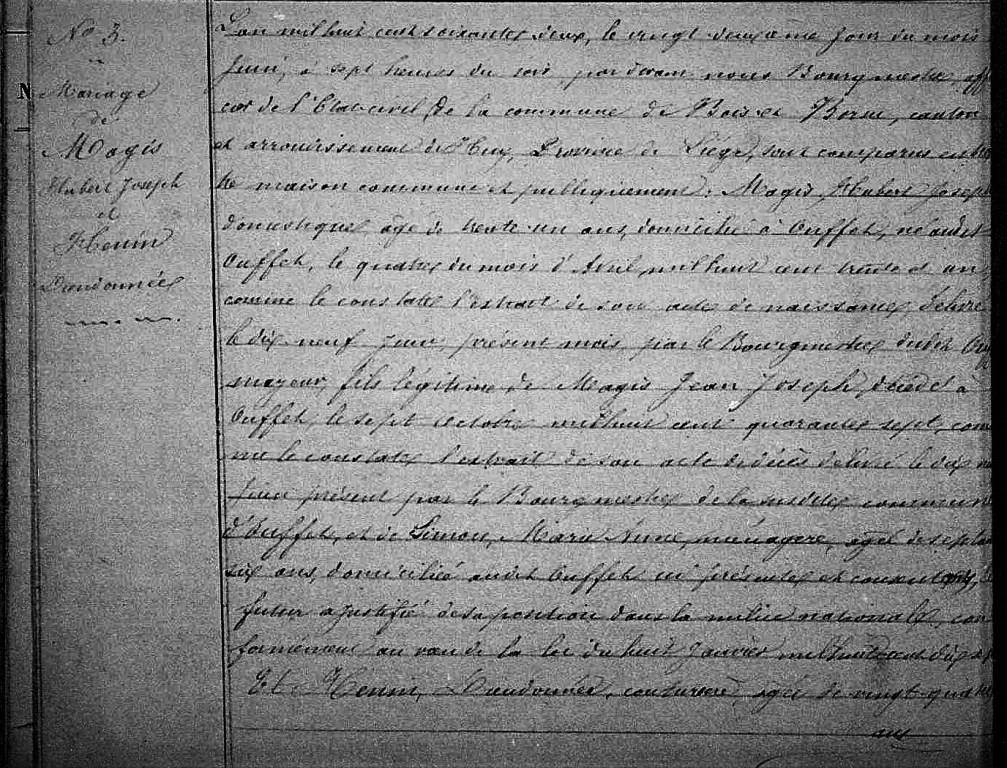 No 3.
Mariage
de
Magis
Hubert Joseph
et
Henin
Dieudonnée
L'an mil huit cent soixante deux, le vingt deuxième jour du mois
Juin, à sept heures du soir, par devant nous Bourgmestre, offi
cier de l'Etat civil de la commune de Bois et Borsu, canton
et arrondissement de Huy, Province de Liège, sont comparus en no
tre maison commune et publiquement: Magis, Hubert Joseph
domestique, âgé de trente un ans, domicilié à Ouffet, né audit
Ouffet, le quatre du mois d'Avril mil huit cent trente et un
comme le constate l'extrait de son acte de naissance, délivré
le dix neuf Juin, présent mois, par le Bourgmestre dudit
majeur, fils légitime de Magis Jean Joseph, décédé à
Ouffet, le sept Octobre mil huit cent quarante sept, com
me le constate l'extrait de son acte de décès délivré le dix
Juin présent par le Bourgmestre de la susdite commune
d'Ouffet, et de Simon, Marie Anne, ménagère, agée de
six ans, domicilié audit Ouffet ici présente et consentante,
futur a justifié de sa position dans la milice nationale, con
formément au vœu de la loi du huit Janvier mil huit cent dix sept
Et Henin, Dieudonnée, couturière, agée de vingt quatre
ans